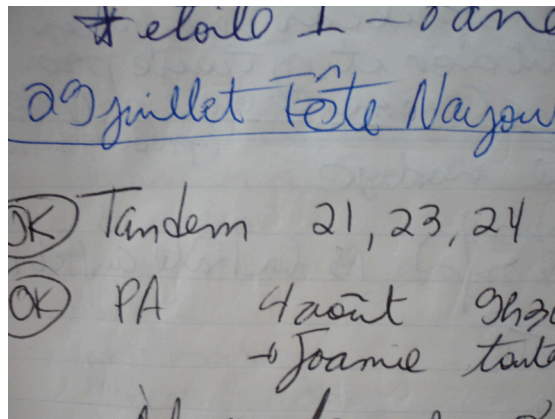 # etoile 1 -
29 juillet Fête Nayou
OK Tandem 21, 23, 24
OK PA 4 août 9h30
→ Joanie